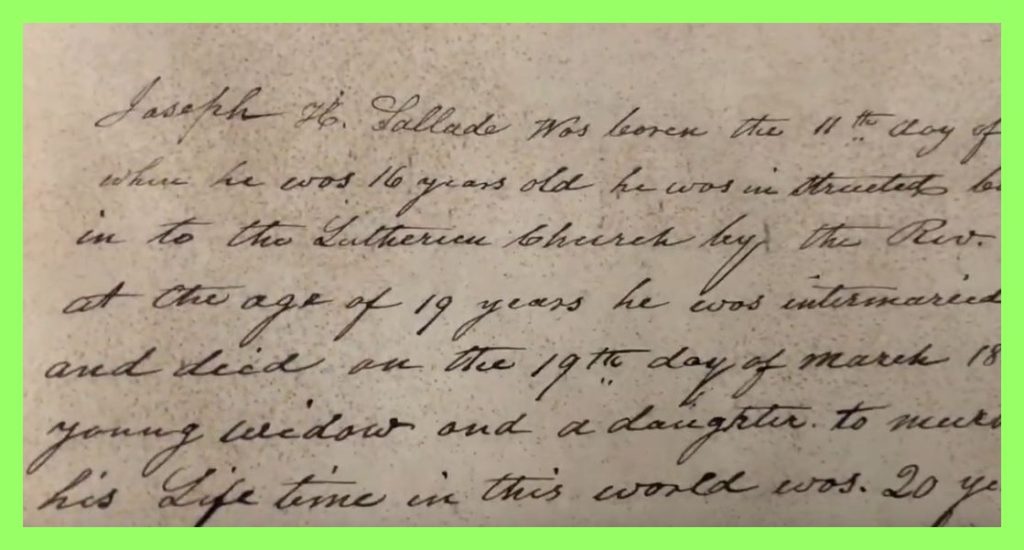 Joseph H. Sallade Was boren the 11th day of
when he was 16 years old he was in structed
in to the Lutherien Church by the Rev.
at the age of 19 years he was intermareed
and deid on the 19th day of march 18
young widow and a daughter. to
his Life time in this world was. 20